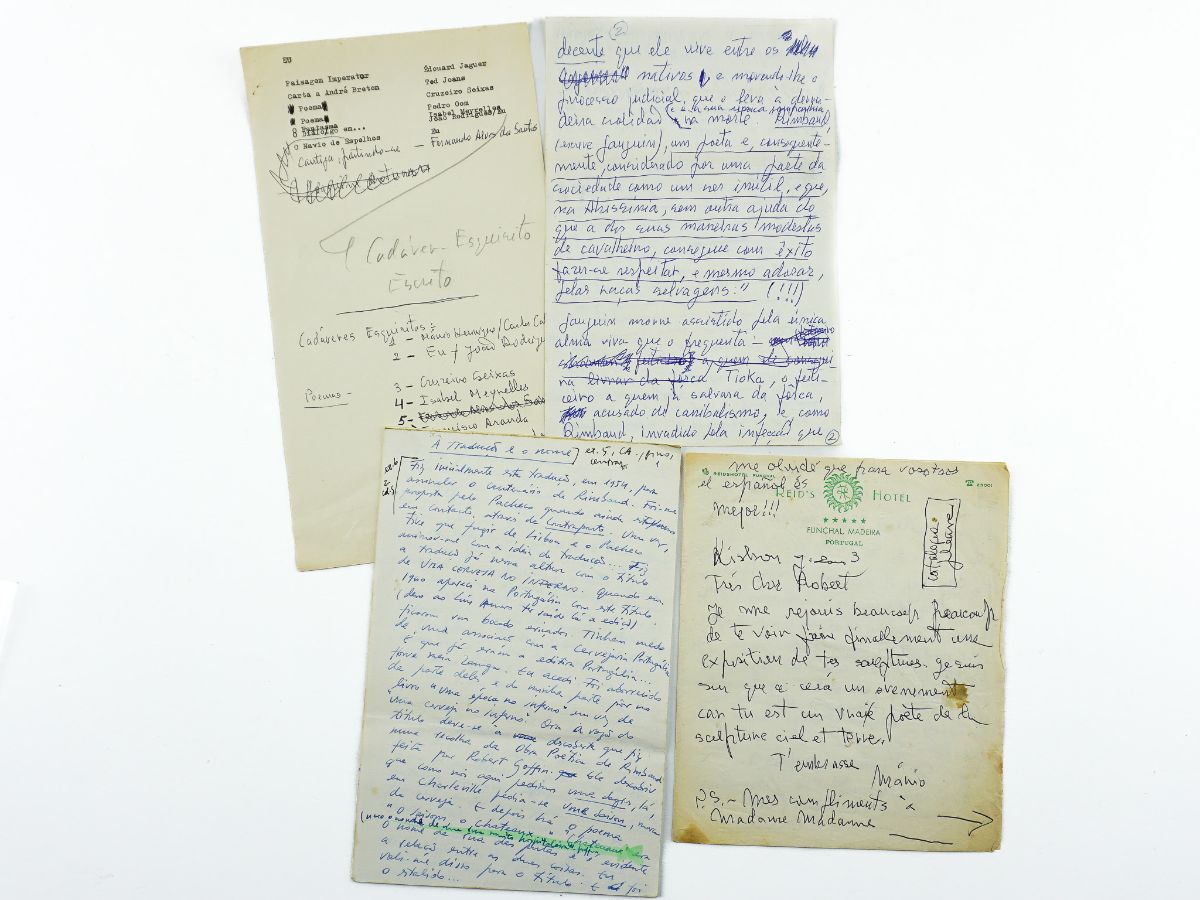 EU
Paisagem Imperator
Édouard Jaguer
Carta a André Breton
Ted Joans
Poema
Cruzeiro Seixas
Poema
Pedro Oom
O Fantasma
Isabel Meyrelles
O Diálogo em...
João Rodrigues/Eu
O Navio de Espelhos
Eu
Cantiga, partindo-se — Fernando Alves dos Santos
Cadáver Esquisito
Escrito
Cadáveres Esquisitos:
1 — Mário Henrique/Carlos
2 — Eu + João Rodrigues
3 — Cruzeiro Seixas
Poemas —
4 — Isabel Meyrelles
5 —
Aranda
2
decente que ele vive entre os
nativos, e movendo-lhe o
processo judicial, que o leva à derra-
deira
na morte. "Rimbaud,
(escreve Gauguin), um poeta e, consequente-
mente, considerado por uma parte da
sociedade como um ser inútil, e que,
na Abissínia, sem outra ajuda do
que a das suas maneiras modestas
de cavalheiro, consegue com êxito
fazer-se respeitar, e mesmo adorar,
pelas raças selvagens." (!!!)
Gauguin morre assistido pela única
alma viva que o frequenta —
a quem
na livrar da forca Tioka, o feiti-
ceiro a quem já salvara da forca,
acusado de canibalismo, e como
Rimbaud, invadido pela infecção que
2
A Tradução e o nome
Fiz inicialmente esta tradução, em 1954, para
assinalar o Centenário de Rimbaud. Foi-me
proposta pelo Pacheco quando ainda
em contacto, através da Contraponto. Uma vez,
tive que fugir de Lisboa e o Pacheco
com a ideia da tradução... Fiz
a tradução já nessa altura com o título
de UMA CERVEJA NO INFERNO. Quando em
1960 apareci na Portugália com este título
(devo ao Luís Amaro ter saído lá a edição)
ficaram um bocado eriçados. Tinham medo
de uma associação com a Cervejaria Portugália
é que já eram a editora Portugália...
Eu acedi. Foi aborrecido
da parte deles e da minha parte pôr no
livro "uma época no inferno" em vez de
"uma cerveja no inferno". Ora a razão do
título deve-se a descoberta que fiz
numa recolha da Obra Poética de Rimbaud
feita por Robert Goffin. Ele descobriu
que como nós aqui pedimos uma
em Charleville pedia-se uma saison, uma
cerveja. E depois há o poema
"O saisons, o chateaux."
O nome da rua das putas e é evidente
a relação entre as duas coisas. Eu
vali-me disso para o título. E foi
o sitalido...
me olvidé que para vosotros
el español es
mejor!!!
REID'S HOTEL
FUNCHAL MADEIRA
PORTUGAL
23001
Lisbon 3
Très Cher Robert
Je me rejouis beaucoup beaucoup
de te voir faire finallement une
exposition de tes sculptures. Je suis
sur que ce cerá un evenement
car tu est un vraie poète de la
sculpture ciel et terre.
T'embrasse
Mário
P.S. — Mes compliments à
Madame Madame